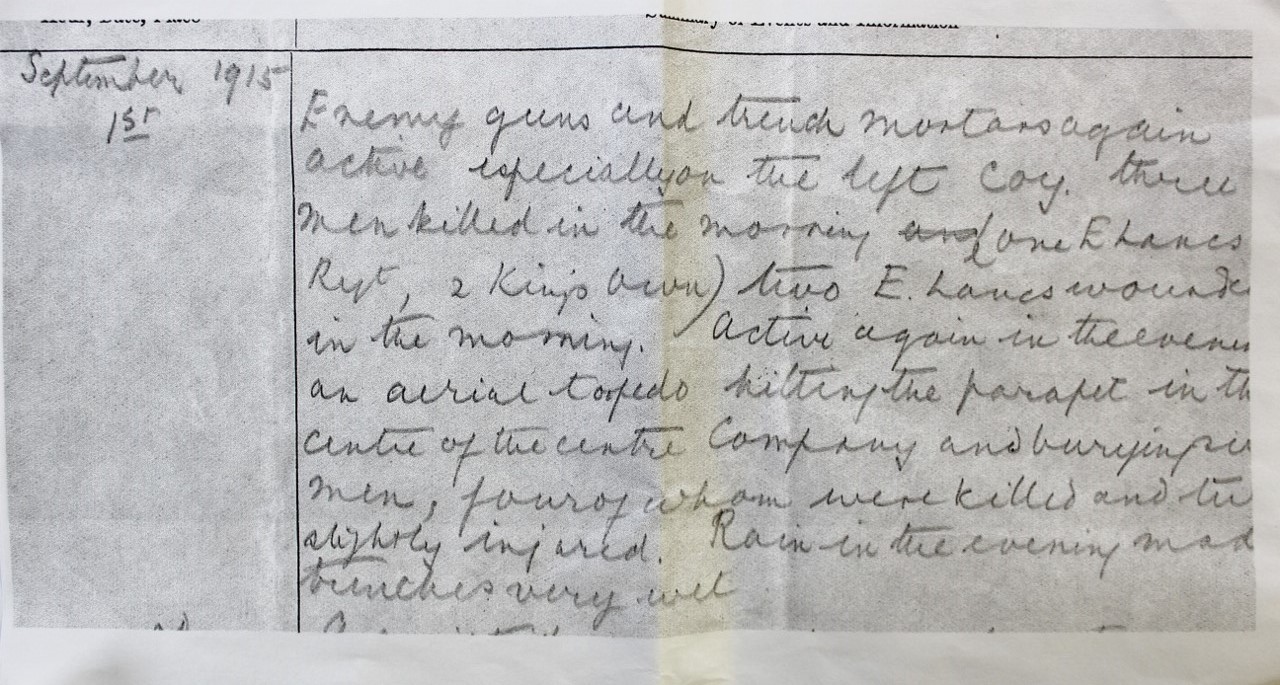 Hour, Date, Place
Summary of Events and Information
September 1915
1st
Enemy guns and trench mortars again
active especially on the left Coy. three
men killed in the morning and (one E Lancs
Regt, 2 King's Own) two E. Lancs wounde
in the morning. Active again in the evenin
an aerial torpedo hitting the parapet in th
centre of the centre Company and burying si
men, four of whom were killed and tw
slightly injured. Rain in the evening mad
trenches very wet